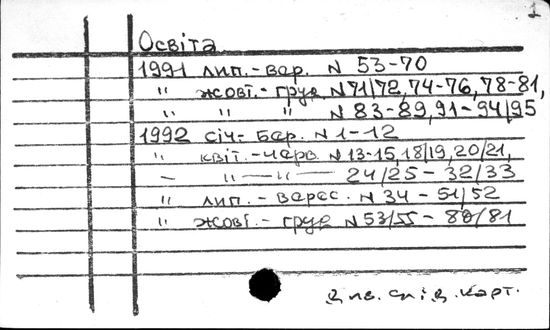 1
Освіта
1991 лип.-вер. N 53-70
" жовт.-груд N 71/72, 74-76, 78-81,
" " " N 83-89, 91-94/95
1992 січ.- Бер. N 1-12
" квіт.-черв N 13-15, 18/19, 20/21,
— " — " — 24/25 - 32/33
" лип. - верес. N 34 - 51/52
" жовт. - груд N 53/55 - 80/81
карт.